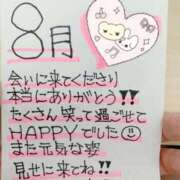 8月
会いに来てくださり
本当にありがとう!!
たくさん笑って過ごせて
HAPPYでした☺
また元気な姿
見せに来てね!!